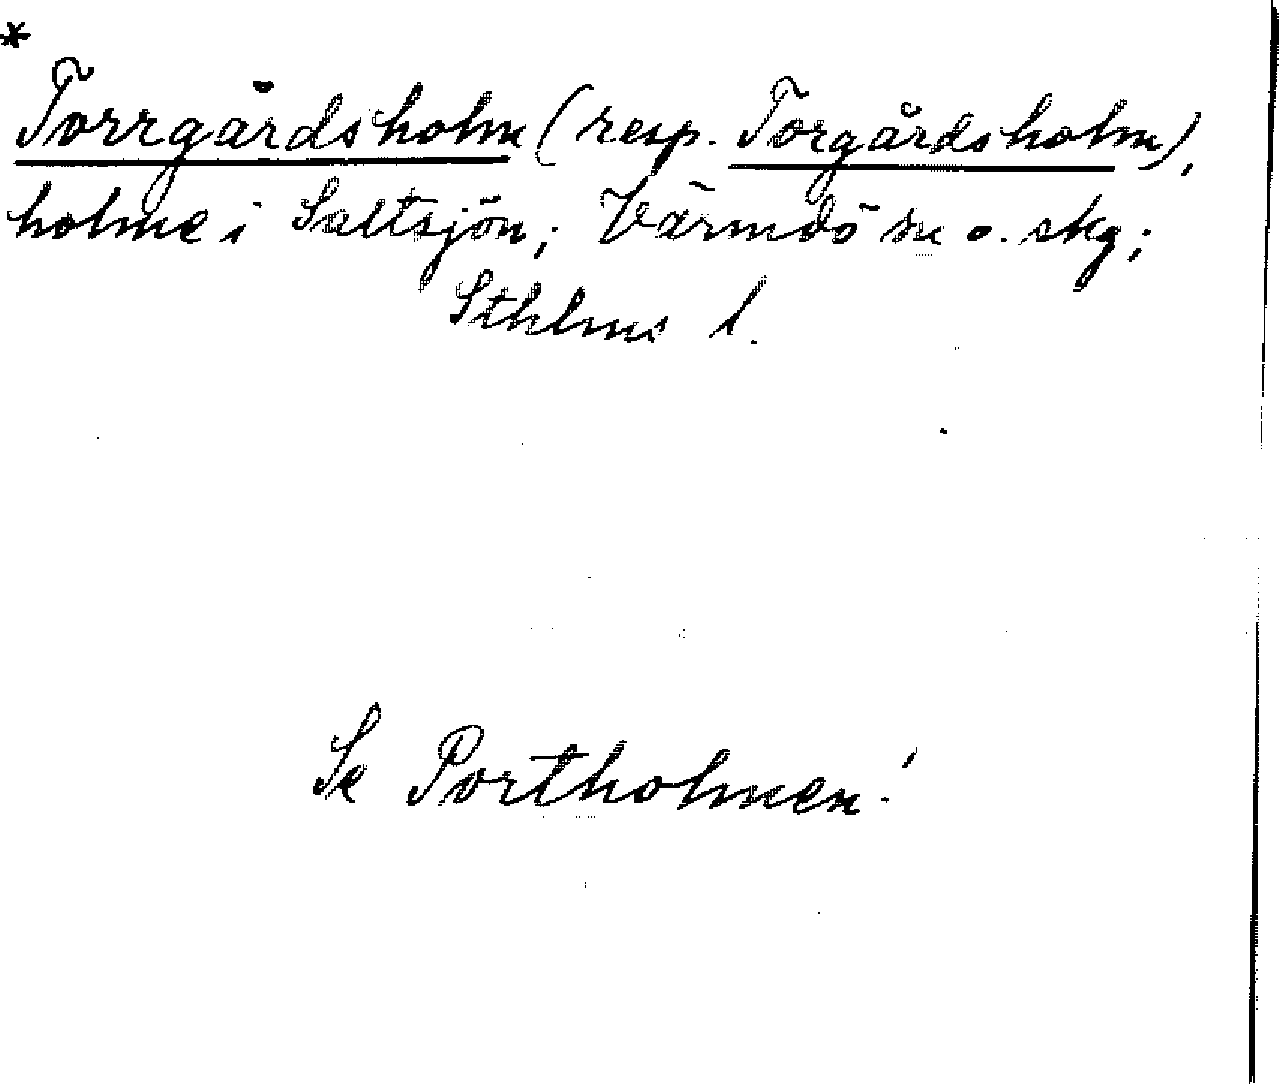 *
Torrgårdsholm (resp. Torgårdsholm),
holme i Saltsjön; Värmdö sn o. skg;
Sthlms l.
Se Portholmen!